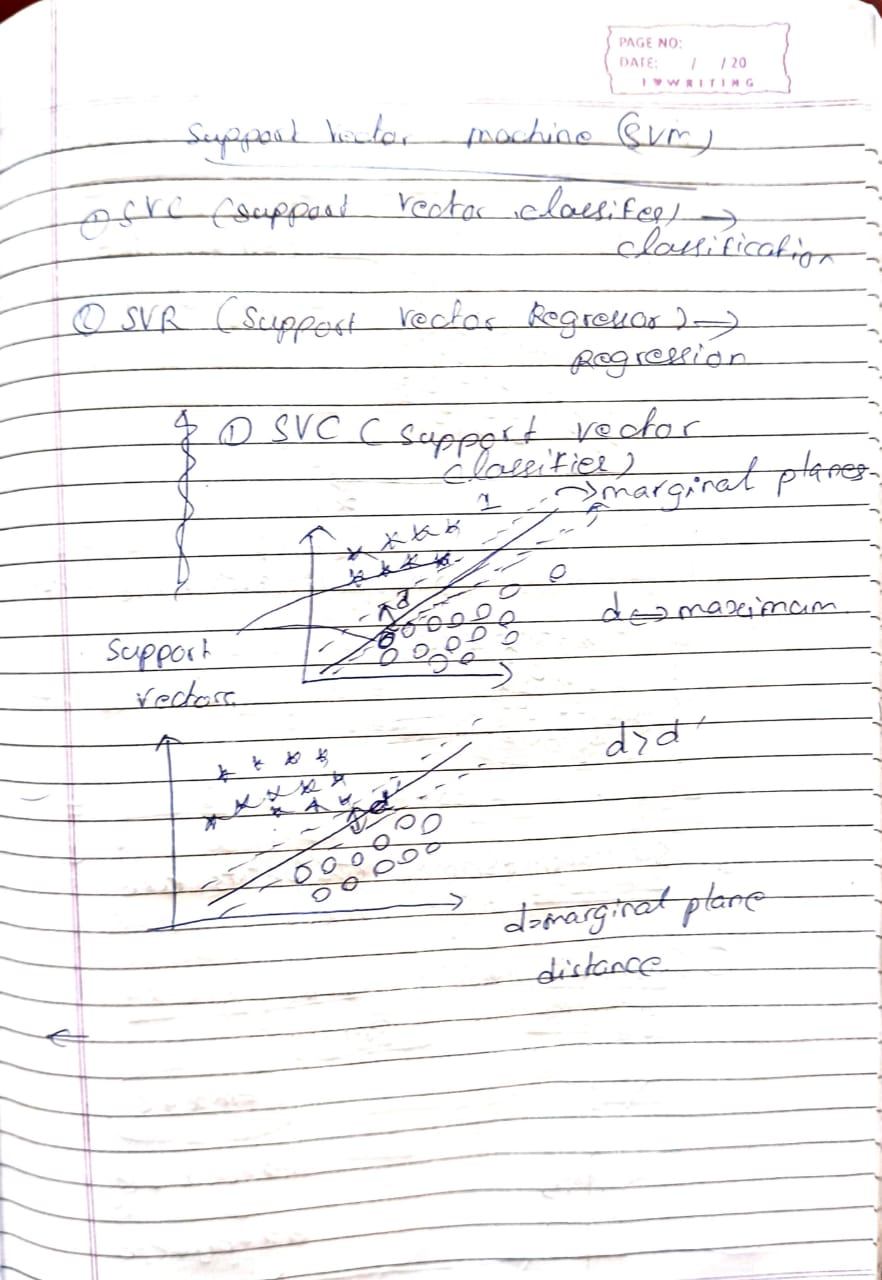 PAGE NO:
DATE: / /20
I ♥ WRITING
Support Vector machine (SVM)
① SVC (Support Vector classifer) →
classification
② SVR (Support Vector Regressor) →
Regression
① SVC (Support vector
classifier)
→ marginal planes
1
d
d ↔ maximam
Support
Vectors
d > d'
d
d = marginal plane
distance
←